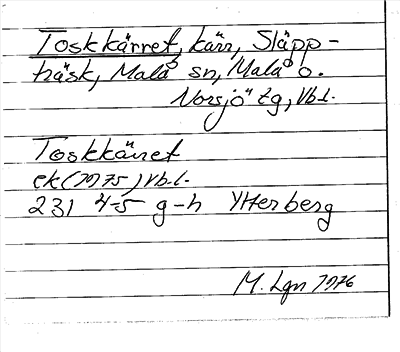 Toskkärret, kärr, Släpp-
träsk, Malå sn, Malå o.
Norsjö tg, Vb.l.
Toskkärret
ek (1975) Vb.l.
231 4-5 g-h Ytterberg
M. Lgn 1976